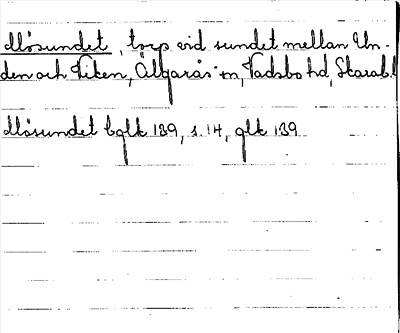 Mösundet, torp vid sundet mellan Un-
den och Viken, Älgarås sn, Vadsbo hd, Skarab. l
Mösundet bglk 139, s. 14, glk 139